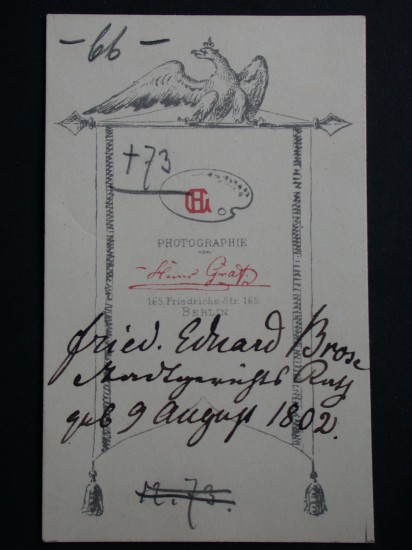 - 66 -
+73
HG
PHOTOGRAPHIE
von
Heinr. Graf.
165. Friedrichs-Str. 165.
BERLIN
Fried. Eduard Brose
Stadtgerichts Rath
geb 9 August 1802.
12.73.